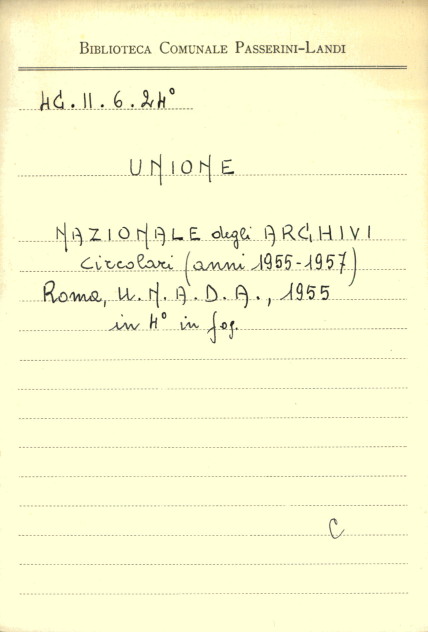 BIBLIOTECA COMUNALE PASSERINI-LANDI
4C.II.6.24°
UNIONE
NAZIONALE degli ARCHIVI
Circolari (anni 1955-1957)
Roma, U.N.A.D.A., 1955
in 4° in fog.
C